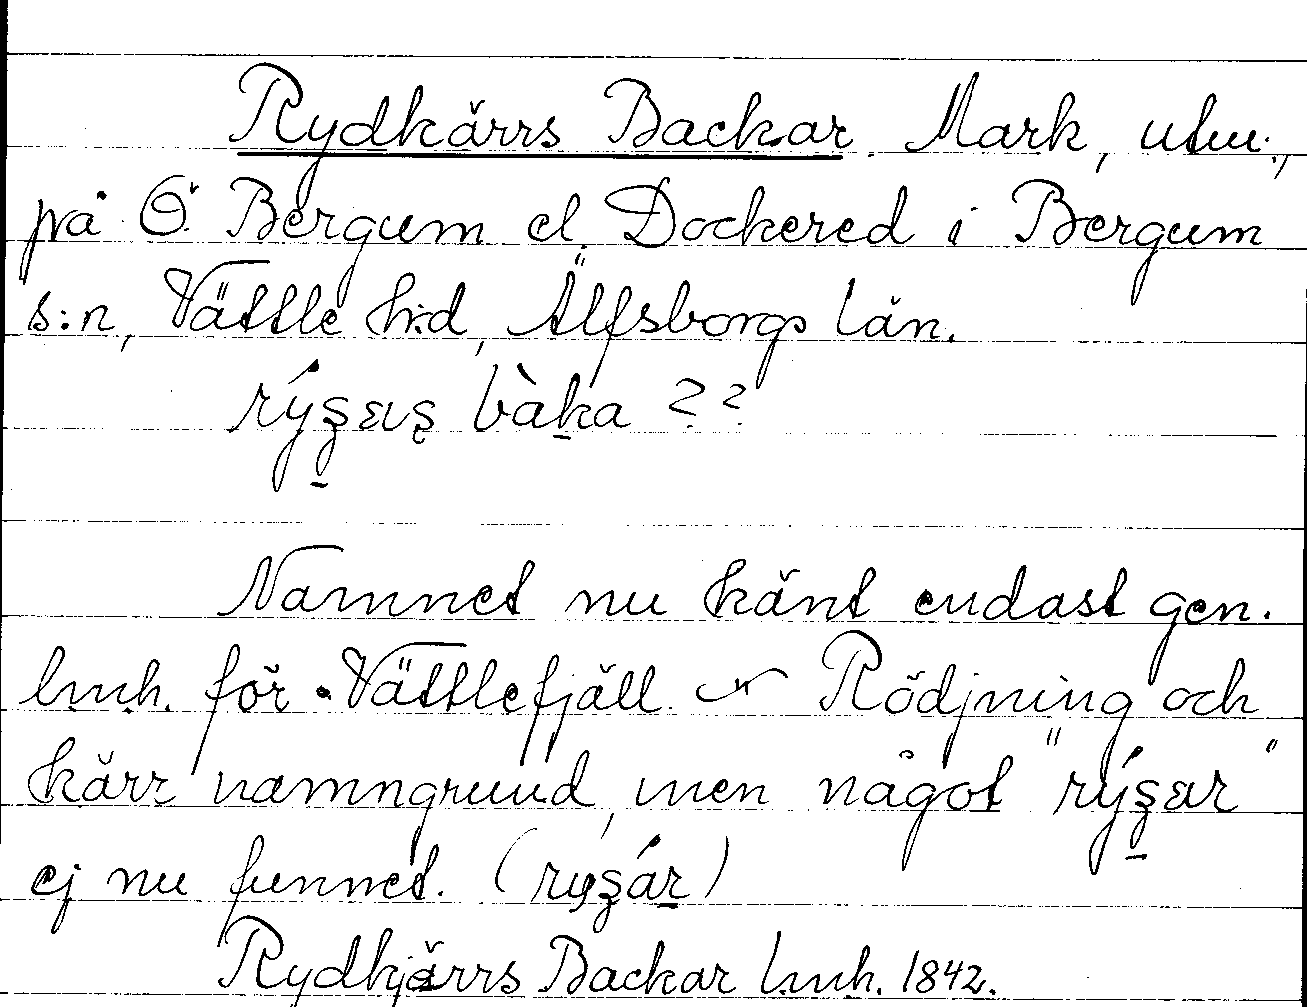 Rydkärrs Backar. Mark, utm.,
på Ö. Bergum el. Dockered i Bergum
s:n, Vättle h:d, Älfsborgs län.
rýʂɛʂ bàka ??
Namnet nu känt endast gen.
lmh. för Vättlefjäll. Rödjning och
kärr namngrund, men något "rýʂɛr"
ej nu funnet. (ryʂár)
Rydkjärrs Backar lmh. 1842.